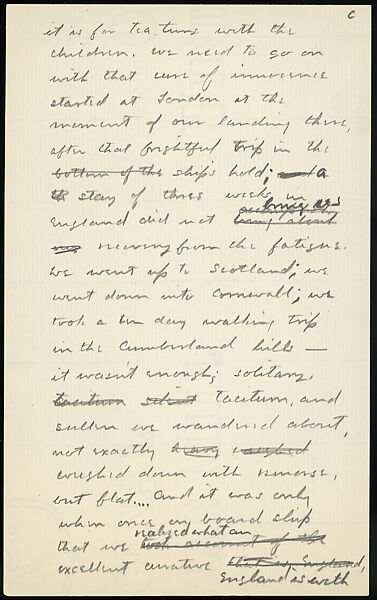 6
it is for tea-time with the
children. We used to go on
with that cure of innocence
started at London at the
moment of our landing there,
after that frightful trip in the
bottom of the ship's hold; a
stay of three weeks in
bring us
England did not bring about
recovery from the fatigue.
We went up to Scotland; we
went down into Cornwall; we
took a ten day walking trip
in the Cumberland hills —
it wasn't enough; solitary
taciturn silent taciturn, and
sullen we wandered about,
not exactly heavy weighed
weighed down with remorse,
but flat.... And it was only
when once on board ship
realized what an
that we took account of the
excellent curative that is England,
England is with